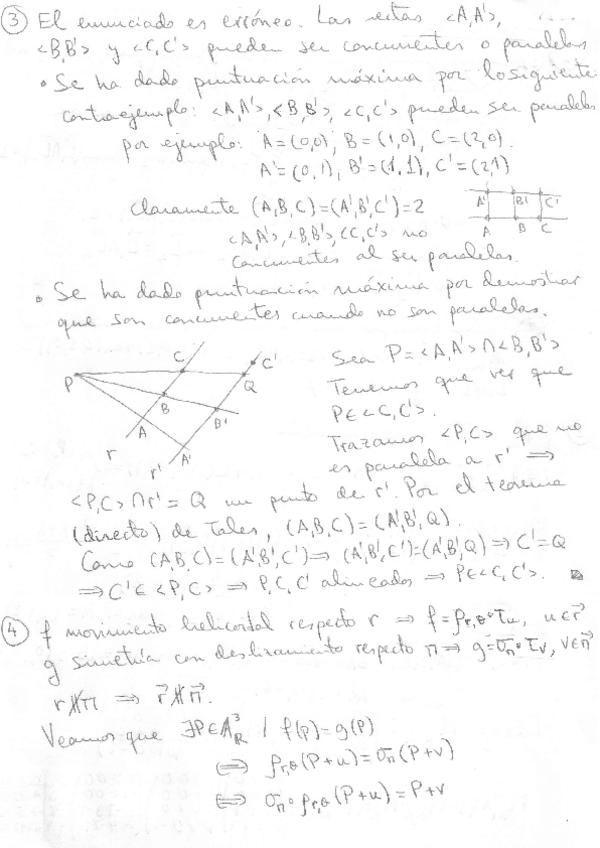 ③ El enunciado es erróneo. Las rectas <A,A'>,
<B,B'> y <C,C'> pueden ser concurrentes o paralelas
• Se ha dado puntuación máxima por lo siguiente:
contraejemplo: <A,A'>, <B,B'>, <C,C'> pueden ser paralelas
por ejemplo: A=(0,0), B=(1,0), C=(2,0).
A'=(0,1), B'=(1,1), C'=(2,1)
Claramente (A,B,C)=(A',B',C')=2
<A,A'>, <B,B'>, <C,C'> no
concurrentes al ser paralelas.
A' B' C'
A B C
• Se ha dado puntuación máxima por demostrar
que son concurrentes cuando no son paralelas.
P C C' Q B B' A A' r r'
Sea P=<A,A'>∩<B,B'>
Tenemos que ver que
P∈<C,C'>.
Trazamos <P,C> que no
es paralela a r' ⟹
<P,C>∩r'=Q un punto de r'. Por el teorema
(directo) de Tales, (A,B,C)=(A',B',Q).
Como (A,B,C)=(A',B',C')⟹(A',B',C')=(A',B',Q)⟹C'=Q
⟹C'∈<P,C>⟹P,C,C' alineados⟹P∈<C,C'>.
④ f movimiento helicoidal respecto r ⟹ f=ρr,θ∘τu, u∈r⃗
g simetría con deslizamiento respecto π⟹g=σπ∘τv, v∈π⃗
r∦π ⟹ r⃗∦π⃗.
Veamos que ∃P∈A³R / f(P)=g(P)
⟺ ρr,θ(P+u)=σπ(P+v)
⟺ σπ∘ρr,θ(P+u)=P+v